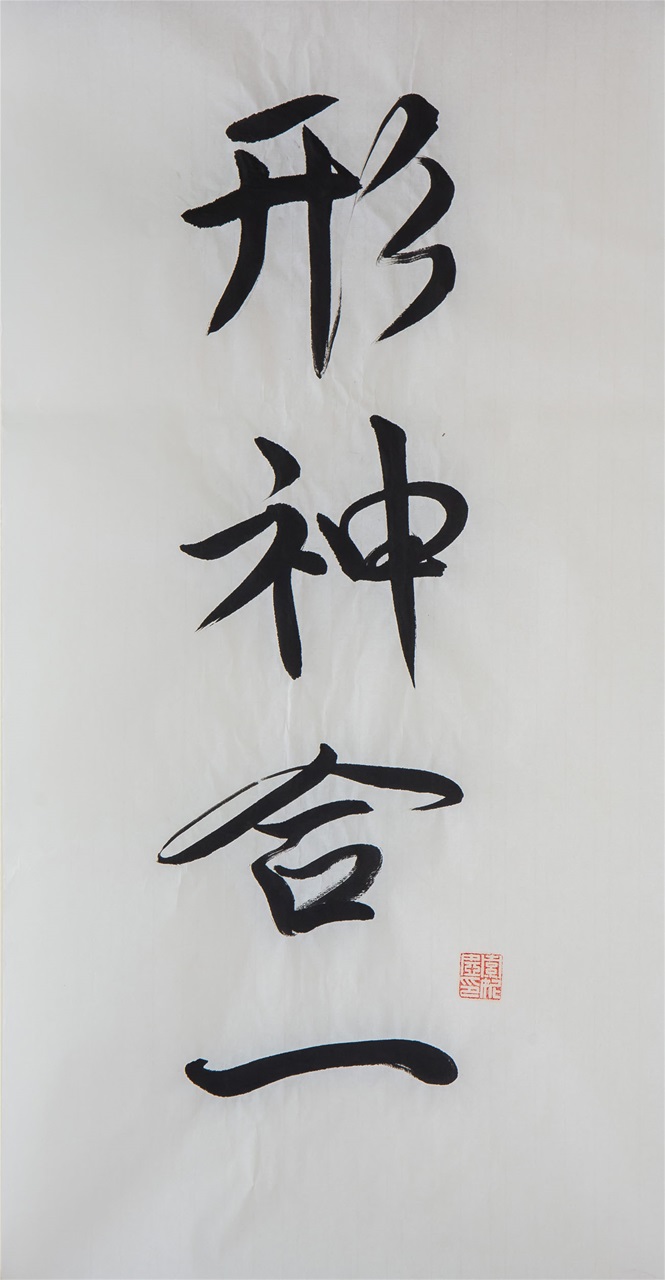 形神合一